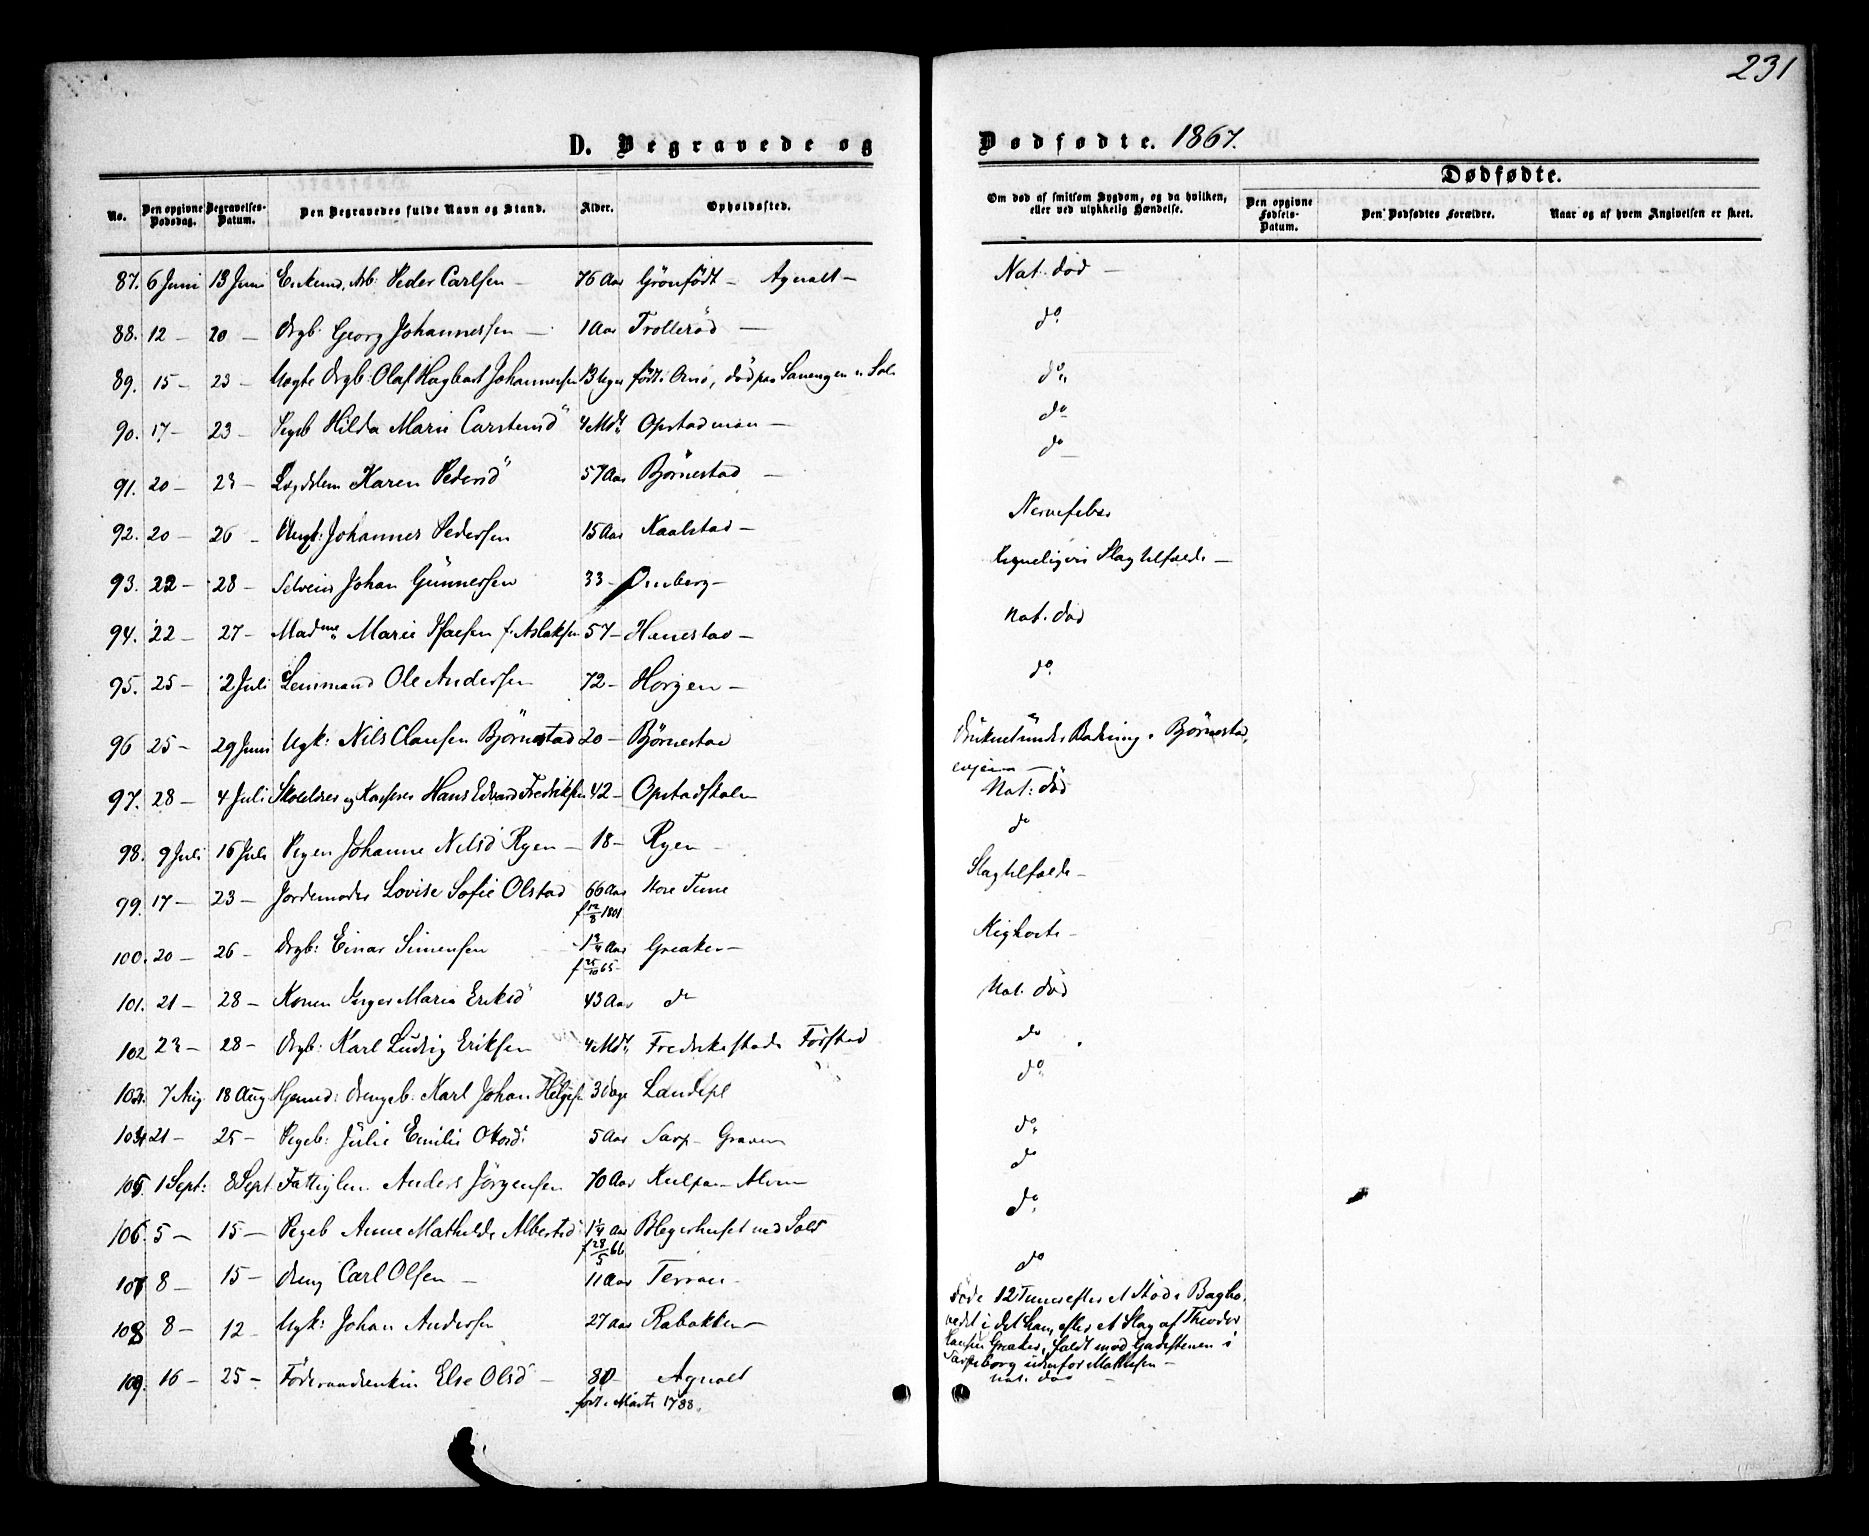 231
D. Begravede og Dødfødte. 1867.
No. Den opgivne Dødsdag. Begravelses-Datum. Den Begravedes fulde Navn og Stand. Alder. Opholdssted. Om død af smitsom Sygdom, og da hvilken, eller ved ulykkelig Hændelse. Dødfødte. Den opgivne Fødsels-Datum. Den Dødfødtes Forældre. Naar og af hvem Angivelsen er skeet.
87. 6 Juni 13 Juni Enkemd. Arb: Peder Carlsen – 76 Aar Grönfödt – Agnalt – Nat. död –
88. 12 – 20 – Drgb. Georg Johannessen – 1 Aar Trolleröd – do.
89. 15 – 23 – Uægte Drgb. Olaf Hagbart Johannessen 13 Uger födt i död paa do.
90. 17 – 23 – Pigeb Hilda Marie Carstensd 4 Mdr Opstad – do
91. 20 – 23 – Karen Pedersd 57 Aar Björnestad – do –
92. 20 – 26 – Ungk: Johannes Pedersen 15 Aar Kaalstad – Nervefeber
93. 22 – 28 – Johan Günnersen 33 – Slagtilfælde –
94. 22 – 27 – Madme Marie Isaksen f. Aslaksen 57 – Hanestad – Nat. död
95. 25 – 2 Juli Leimand Ole Andersen 72 – Horgen – do.
96 25 – 29 Juni Ugk: Nils Clausen Björnestad 20 – Björnestad Druknet under Badning i Björnestad
97. 28 – 4 Juli Skolelærer og Kasserer Hans Edvard Fredriksen 42 – Opstadskole Nat: död
98. 9 Juli 16 Juli Pigen Johanne Nilsd Ryen – 18 – Ryen – do
99. 17 – 23 – Jordemoder Lovise Sofie Olstad 66 Aar Tune Slagtilfælde –
f 12/8 1801
100. 20 – 26 – Drgb: Einar Simensen 1 3/4 Aar Greaker – Kighoste –
f 25/10 65 –
101. 21 – 28 – Konen Inger Maria Eriksd 43 Aar do Nat. död
102 23 – 28 – Drgb: Karl Ludvig Eriksen 4 Mdr. Fredrikstads Forstad do
103. 7 Aug 18 Aug Hjemmed: Drengeb. Karl Johan Helgesen 3 Dage Landspl do.
104 21 – 25 – Pigeb: Julie Emilie 5 Aar Sarp – Graven do.
105. 1 Sept: 8 Sept Fattiglem Anders Jörgensen 70 Aar do
106 5 – 15 – Pigeb Anne Mathilde Albertsd 1 1/4 Aar ved do.
f 28/5 66
107 8 – 15 – Dreng Carl Olsen – 11 Aar – do
108 8 – 12 – Ugk: Johan Andersen 27 Aar Rabakken – Döde 12 Timer efter et Stöd i Bagho-
vedet, i det han, efter et Slag af Theodor
Hansen Greaker, faldt mod Gadestenen i
Sarpsborg udenfor Mathesen –
109. 16 – 25 – Föderaadsenkin Else Olsd – 80 – Agnalt Nat. död –
födt i Marts 1788.